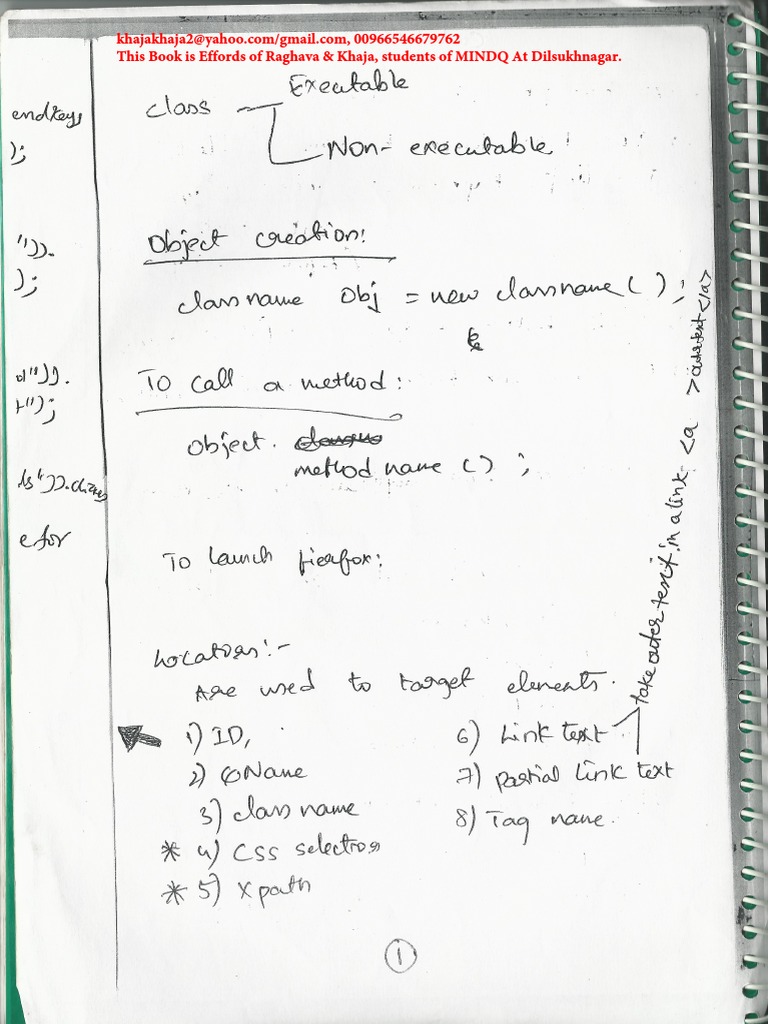 khajakhaja2@yahoo.com/gmail.com, 00966546679762
This Book is Effords of Raghava & Khaja, students of MINDQ At Dilsukhnagar.
endkeys
);
")).
);
d")).
t");
ls")).
efor
class
Executable
Non- executable
Object creation:
classname Obj = new classname ( );
To call a method:
object.
method name ( ) ;
To launch fierfox:
Locators:-
Are used to target elements.
1) ID,
2) Name
3) class name
* 4) CSS selectros
* 5) X path
6) Link text
7) partial link text
8) Tag name.
take outer text in a link <a >outertext</a>
1